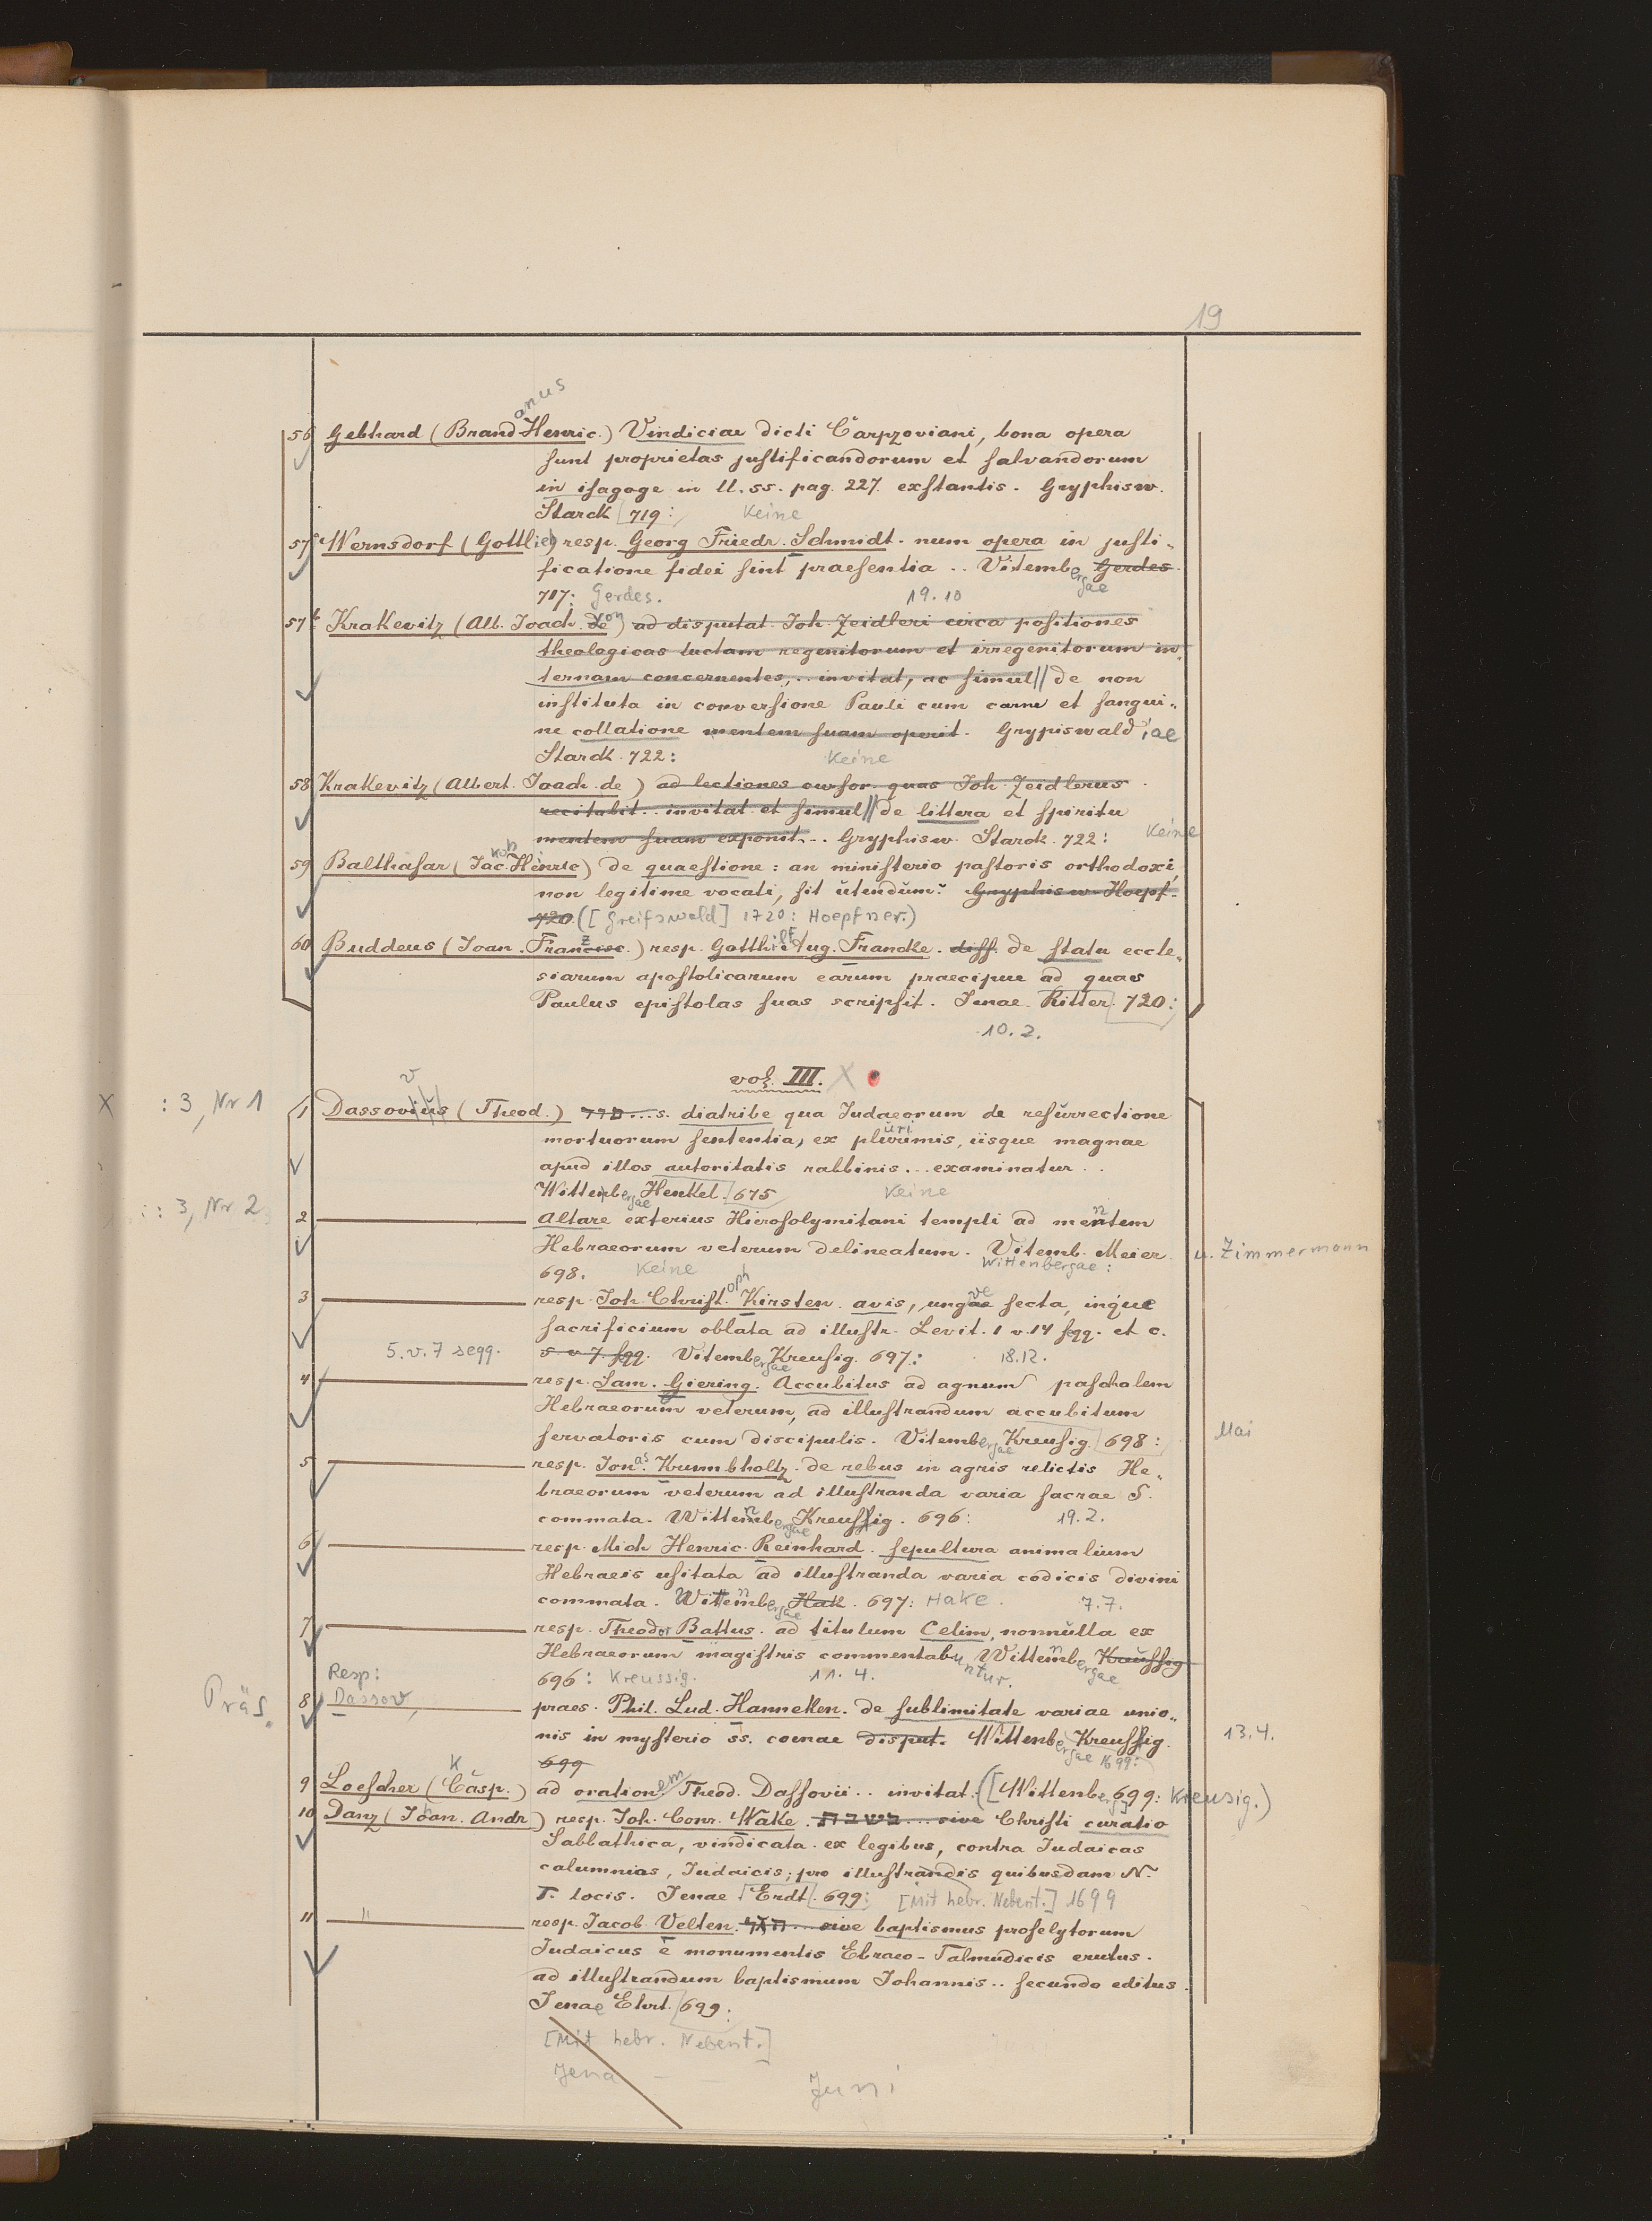 19
anus
56 Gebhard (Brand Henric.) Vindiciae dicti Carpzoviani, bona opera
sunt proprietas justificandorum et salvandorum
in isagoge in ll. ss. pag. 227. exstantis. Gryphisw.
Starck 719: Keine
57a Wernsdorf (Gottlieb) resp. Georg Friedr. Schmidt. num opera in justi„
ficatione fidei sint praesentia .. Vitembergae Gerdes.
717: Gerdes. 19.10
57b Krakevitz (Alb. Joach. de on) ad disputat. Joh. Zeidleri circa positiones
theologicas luctam regenitorum et irregenitorum in„
ternam concernentes, .. invitat, ac simul // de non
instituta in conversione Pauli cum carne et sangui„
ne collatione mentem suam aperit. Grypiswaldiae
Starck. 722: Keine
58 Krakevitz (Albert. Joach. de) ad lectiones cursor. quas Joh. Zeidlerus
recitabit .. invitat et simul // de littera et spiritu
mentem suam exponit... Gryphisw. Starck. 722: Keine
59 Balthasar (Jac. kob Henric) de quaestione: an ministerio pastoris orthodoxi,
non legitime vocati, sit utendum? Gryphisw. Hoepf.
720. ([Greifswald] 1720: Hoepfner.)
60 Buddeus (Joan. Francisc. z) resp. Gotthilf Aug. Francke. diss. de statu eccle„
siarum apostolicarum earum praecipue ad quas
Paulus epistolas suas scripsit. Jenae Ritter. 720:
10.2.
vol. III. X
X : 3, Nr 1
v
1 Dassovius (Theod.) ... s. diatribe qua Judaeorum de resurrectione
mortuorum sententia, ex plurimis, iisque magnae
apud illos autoritatis rabbinis ... examinatur ..
Wittenbergae Henkel. 675 Keine
: 3, Nr 2
2 Altare exterius Hierosolymitani templi ad mentem
Hebraeorum veterum delineatum. Vitemb. Meier. u. Zimmermann
698. Keine Wittenbergae:
3 resp. Joh. Christoph Kirsten. avis, ungve secta, inque
sacrificium oblata ad illustr. Levit. 1 v. 14 sqq. et c.
5. v. 7 seqq. 5 v 7. sqq. Vitembergae Kreusig. 697: 18.12.
4 resp. Sam. Giering. Accubitus ad agnum paschalem
Hebraeorum veterum, ad illustrandum accubitum
servatoris cum discipulis. Vitembergae Kreusig. 698: Mai
5 resp. Jonas Krumbholtz. de rebus in agris relictis He„
braeorum veterum ad illustranda varia sacrae S.
commata. Wittenbergae Kreussig. 696: 19.2.
6 resp. Mich Henric. Reinhard. sepultura animalium
Hebraeis usitata ad illustranda varia codicis divini
commata. Wittenbergae Hak. 697: Hake. 7.7.
7 resp. Theodor Battus. ad titulum Celim, nonnulla ex
Hebraeorum magistris commentabuntur. Wittenbergae Kreussig
696: Kreussig. 11.4.
Resp:
Präs. 8 Dassov, praes. Phil. Lud. Hanneken. de sublimitate variae unio„
nis in mysterio ss. coenae disput. Wittenbergae Kreussig. 13.4.
699 1699:
9 Loescher (Casp. K) ad orationem Theod. Dassovii .. invitat. ([Wittenberg] 699: Kreusig.)
10 Danz (Joan. Andr.) resp. Joh. Conr. Wake. ... sive Christi curatio
Sabbathica, vindicata ex legibus, contra Judaicas
calumnias, Judaicis; pro illustrandis quibusdam N.
T. locis. Jenae Erdt. 699: [Mit hebr. Nebent.] 1699
11 " resp. Jacob Velten. ... sive baptismus proselytorum
Judaicus e monumentis Ebraeo-Talmudicis erutus.
ad illustrandum baptismum Johannis .. secundo editus.
Jenae Ehrt. 699:
[Mit hebr. Nebent.]
Jena — — Juni